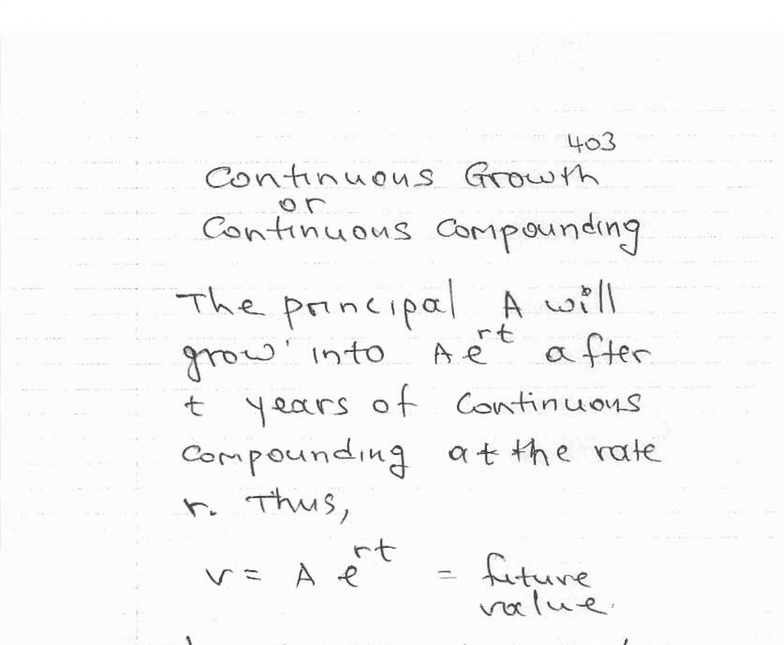 403
Continuous Growth
or
Continuous Compounding
The principal A will
grow into Ae^rt after
t years of Continuous
Compounding at the rate
r. Thus,
v = A e^rt = future
value.